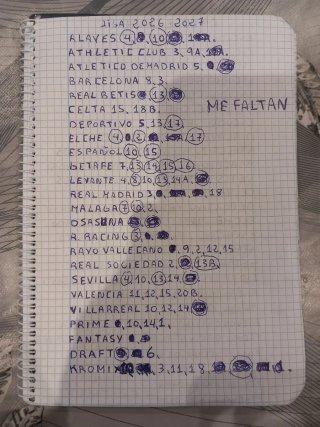 LIGA 2026-2027
ALAVES 4, 10
ATHLETIC CLUB 3, 9A,
ATLETICO DE MADRID 5,
BARCELONA 8.3.
REAL BETIS 13
CELTA 15, 18B.
ME FALTAN
DEPORTIVO 5, 13, 17,
ELCHE 4, 2, 17
ESPAÑOL 10, 15
GETAFE 7, 13, 14, 15, 16
LEVANTE 4, 8, 10, 13, 14A,
REAL MADRID 3, 18
MALAGA 7, 10, 2,
OSASUNA
R. RACING 3,
RAYO VALLECANO 9, 2, 12, 15
REAL SOCIEDAD 2, 13B,
SEVILLA 4, 10, 13, 14
VALENCIA 11, 12, 15, 20B.
VILLARREAL 10, 12, 14
PRIME 10, 14, 1,
FANTASY
DRAFT 6.
KROMIX 3, 11, 18, 1.